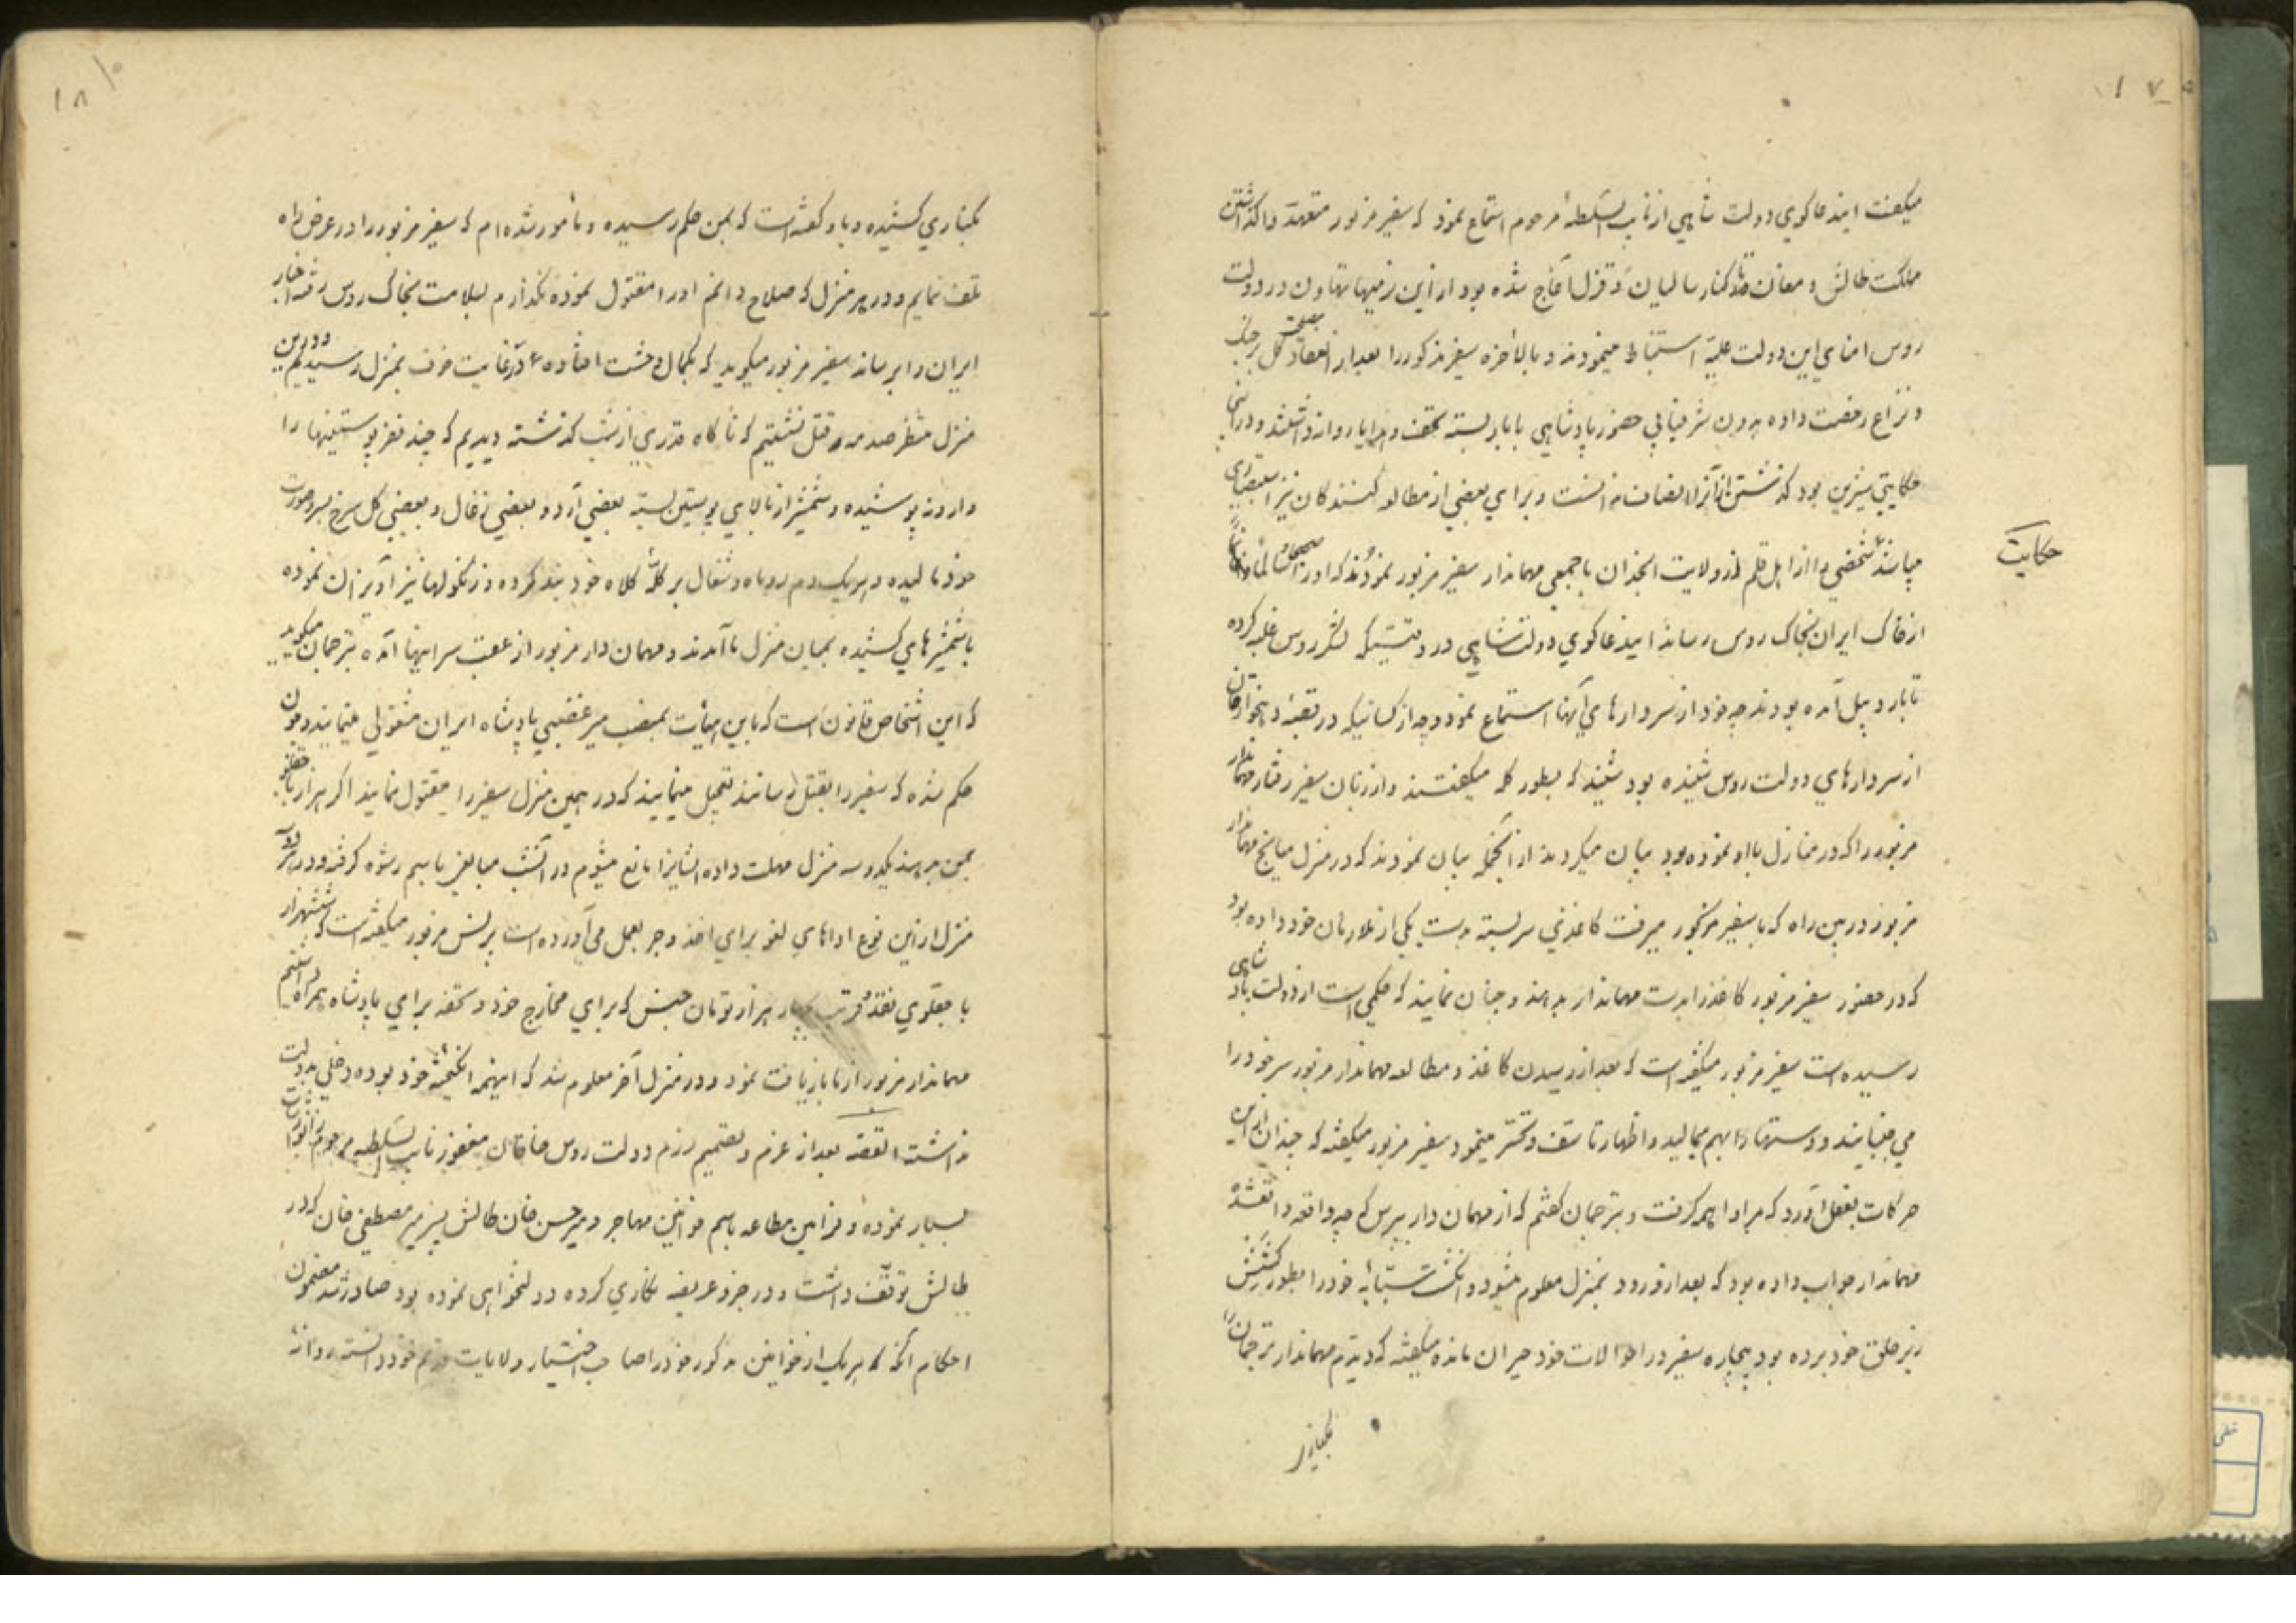 میکفت ایندعاکوی دولت شاهی از نایب السلطنهٔ مرحوم استماع نمود که سفیر مزبور متعهد واکذاشتن
مملکت طالش و مغان تا کنار سالیان و قزل آغاج شده بود از این رفتارها تهاون در دولت
روس امنای این دولت علیّه استنباط مینمودند و بالأخره سفیر مذکور را بعد از انعقاد مصلحت
و نزاع رخصت داده بدون شرفیابی حضور پادشاهی با بار بسته تحف و هدایا روانه داشتند و در اثنای
حکایتی شیرین بود کذشتن از آنرا انصاف ندانست و برای بعضی از مطالعه کنندکان نیز
حکایت
شخصی را از اهل قلم از ولایت یا جمعی مهماندار سفیر مزبور نمودند که او را
از خاک ایران بخاک روس رساند ایندعاکوی دولت شاهی در وقتیکه لشکر روس غلبه کرده
تا باردبیل آمده بودند چه خود از سردارهای آنها استماع نمود و چه از کسانیکه در قصبهٔ
از سردارهای دولت روس شنیده بود شنید که بطور کله میکفتند و از زبان سفیر رفتار مهماندار
مزبور را که در منازل با او نموده بود بیان میکردند از آنجمله بیان نمودند که در منزل میانج مهماندار
مزبور در بین راه که با سفیر مزبور میرفت کاغذی سر بسته بدست یکی از غلامان خود داده بود
که در حضور سفیر مزبور کاغذ را بدست مهماندار بدهند و چنان نمایند که حکمی است از دولت پادشاهی
رسیده است سفیر مزبور میکفته است که بعد از رسیدن کاغذ و مطالعه مهماندار مزبور سر خود را
می جنبانید و دستها را بهم میمالید و اظهار تاسف و تحسّر مینمود سفیر مزبور میکفته که چندان از این
حرکات بفعل آورد که مرا واهمه کرفت و بترجمان کفتم که از مهمان دار بپرس که چه واقعه واقع شده
مهماندار جواب داده بود که بعد از ورود بمنزل معلوم میشود و انکشت سبّابهٔ خود را بطور کشش
زیر حلق خود برده بود بیچاره سفیر در احوالات خود حیران مانده میکفته که دیدم مهماندار ترجمان را
بکناری
بکناری کشیده و باو کفته است که بمن حکم رسیده و مأمور شده ام که سفیر مزبور را در عرض راه
تلف نمایم و در هر منزل که صلاح دانم او را مقتول نموده نکذارم بسلامت بخاک روس رفته اخبار
ایران را برساند سفیر مزبور میکوید که بکمال وحشت افتاده در غایت خوف بمنزل رسیدیم و در این
منزل منتظر صدمه و قتل نشستیم که ناکاه قدری از شب کذشته دیدیم که چند نفر پوستینها را
وارونه پوشیده و شمشیر از بالای پوستین بسته بعضی آرد و بعضی زغال و بعضی کل سرخ بسر و صورت
خود مالیده و هر یک دم روباه و شغال بر کلّهٔ کلاه خود بند کرده و زنکولها نیز آویزان نموده
با شمشیرهای کشیده بمیان منزل ما آمدند و مهمان دار مزبور از عقب سر اینها آمده بترجمان میکوید
که این اشخاص قانون است که باین هیأت بمنصب میر غضبی پادشاه ایران مشغولی مینمایند و چون
حکم شده که سفیر را بقتل رسانند تعجیل مینمایند که در همین منزل سفیر را مقتول نمایند اکر هزار
بمن بدهید یکدو سه منزل مهلت داده اینان را مانع میشوم در آنشب مبالغی باسم رشوه کرفته و در هر
منزل از این نوع اداهای لغو برای اخذ و جر بعمل می آورده است پرنس مزبور میکفته است که ششهزار
باجقلوی نقد و قریب چهار هزار تومان جنس که برای مخارج خود و تحفه برای پادشاه همراه داشتم
مهماندار مزبور از ما بازیافت نمود و در منزل آخر معلوم شد که اینهمه انکیخته خود بوده و دخلی بدولت
نداشته القصه بعد از عزم و تصمیم رزم دولت روس خاقان مغفور نایب السلطنه مرحوم را
بسیار نموده و فرامین مطاعه باسم خوانین مهاجر و میر حسن خان طالش پسر میر مصطفی خان که در
طالش توقف داشت و در جزو عریضه نکاری کرده و دولتخواهی نموده بود صادر شد مضمون
احکام آنکه هر یک از خوانین مذکور خود را صاحب اختیار ولایات قدیم خود دانسته روانهٔ